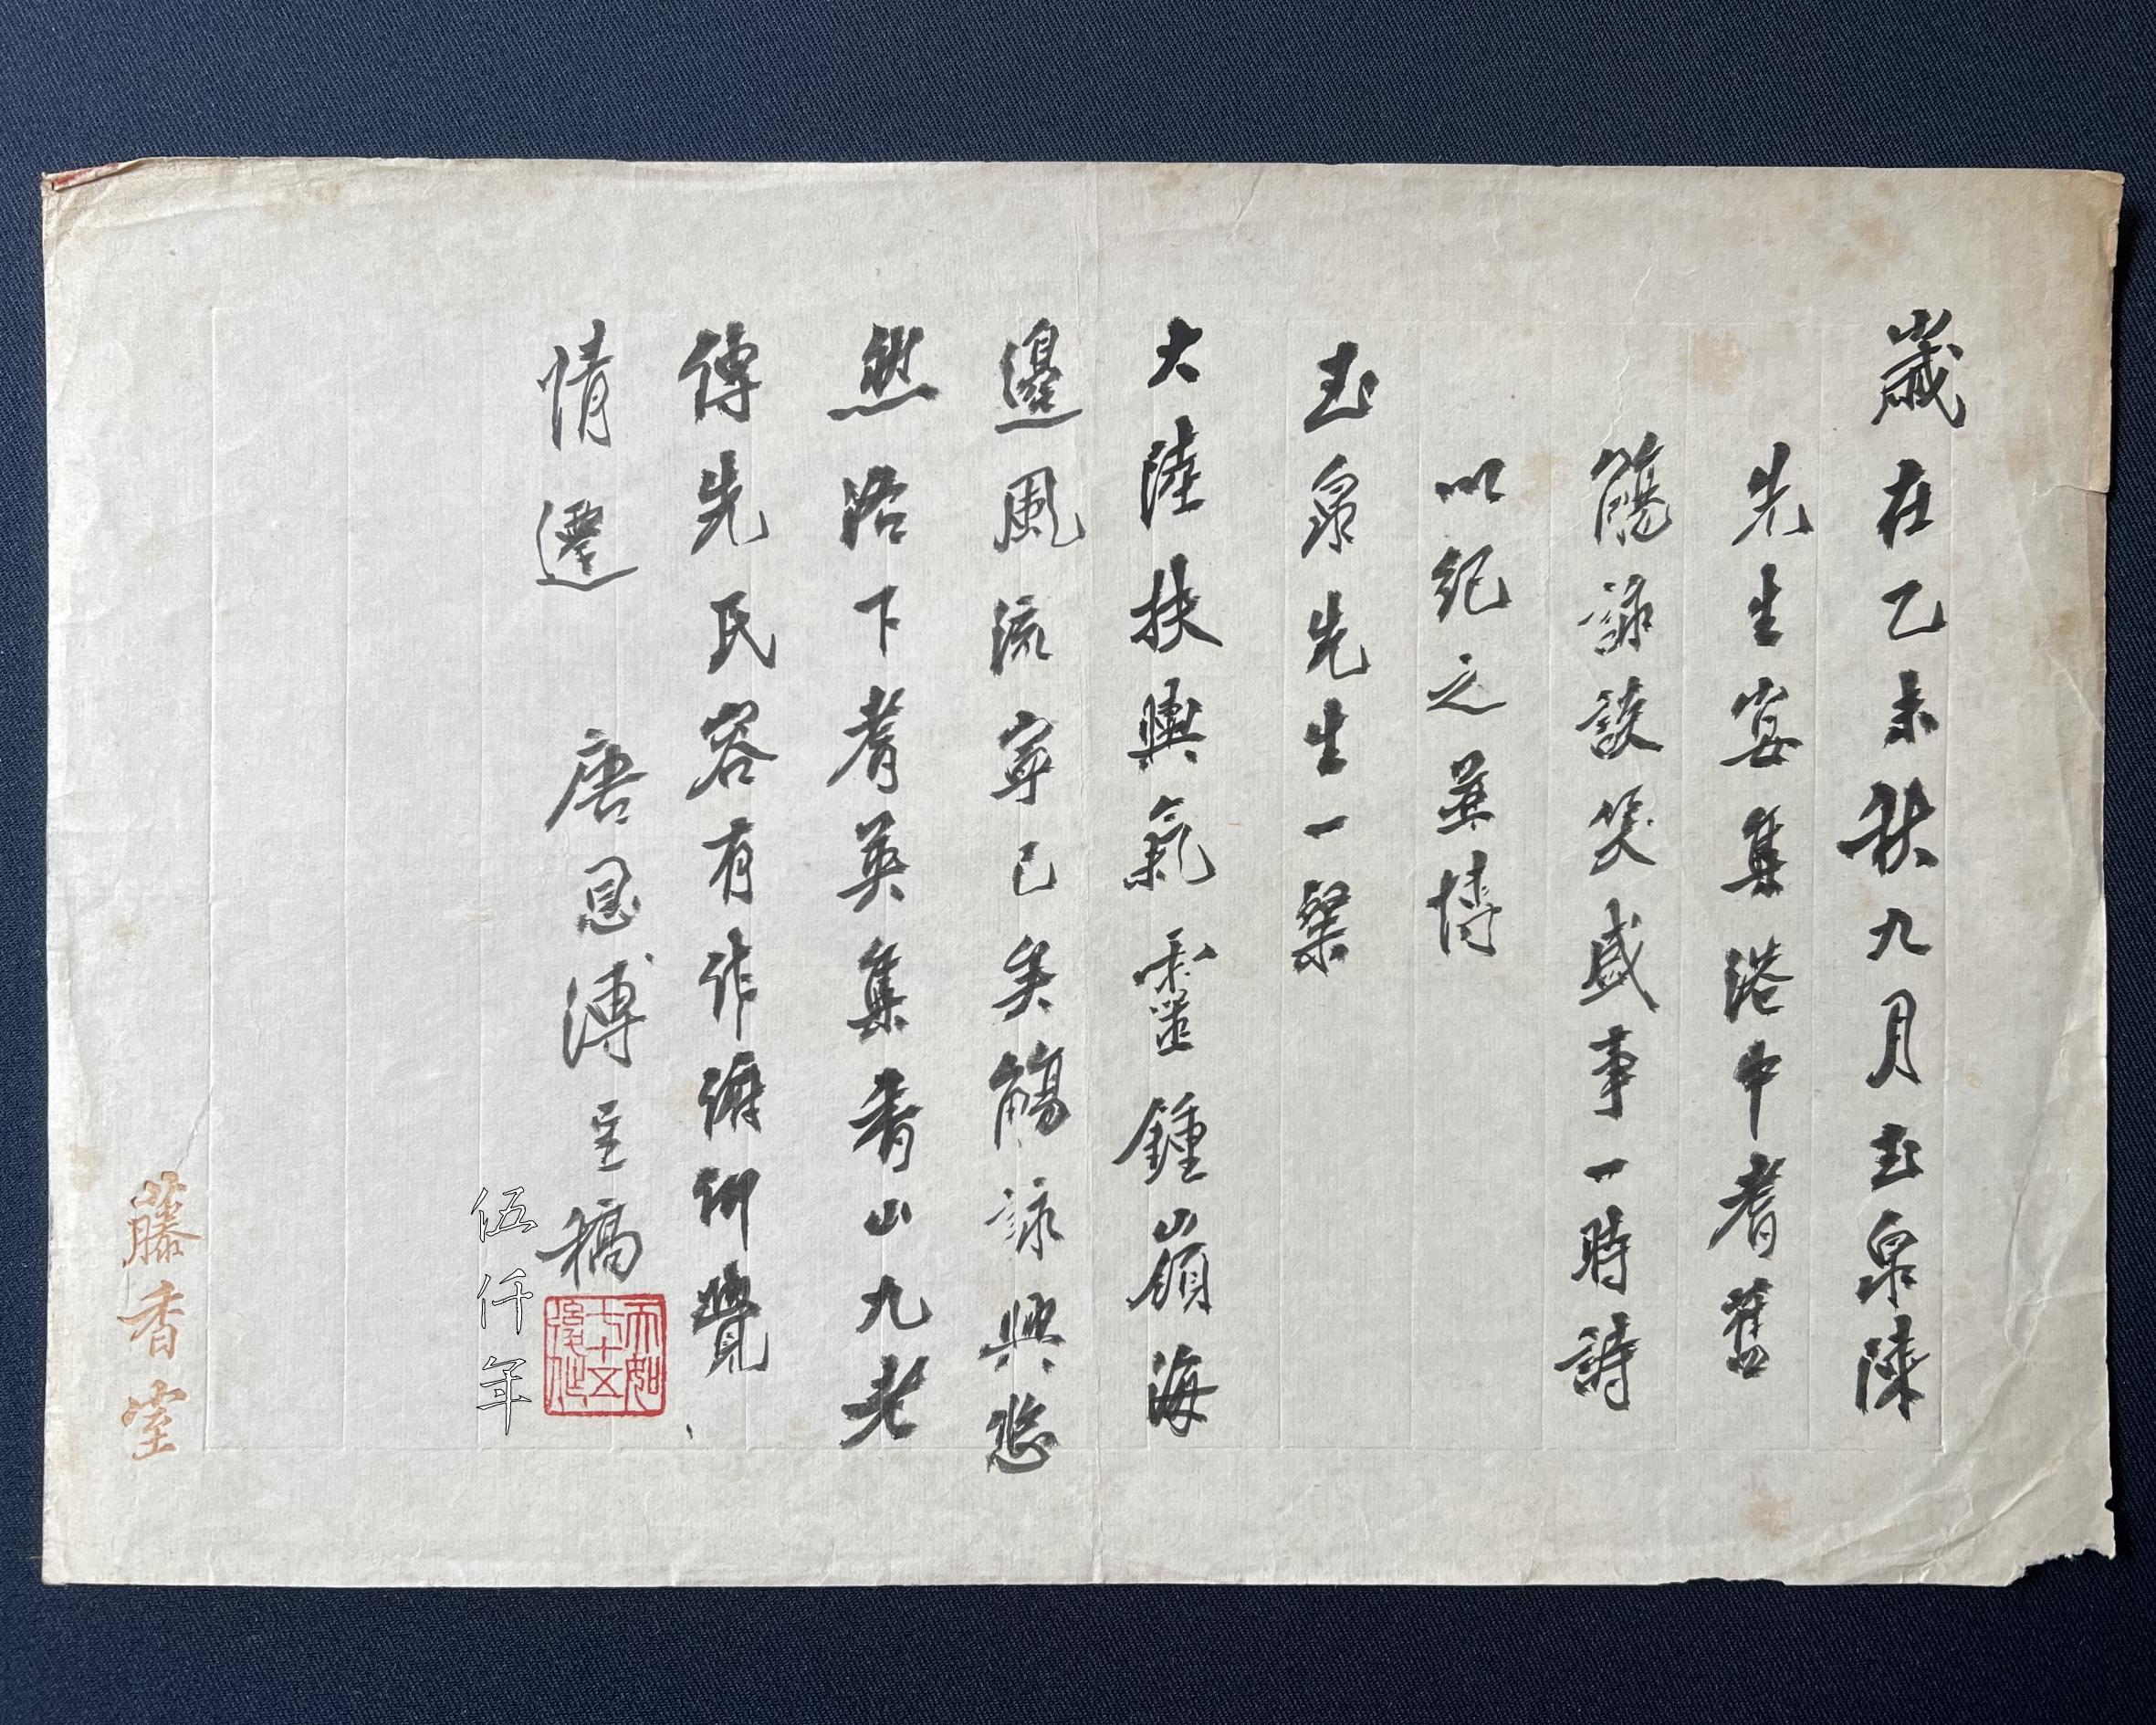 歲在乙未秋九月玉泉陳
先生宴集港中耆舊
觴詠談笑盛事一時詩
以紀之並博
玉泉先生一粲
大陸扶輿氣靈鍾嶺海
邊風流寧已矣觴詠興悠
然洛下耆英集香山九老
傳先民容有作俯仰覺
情遷
唐恩溥呈稿
不如
七十五
後作
伍仟年
藤香室